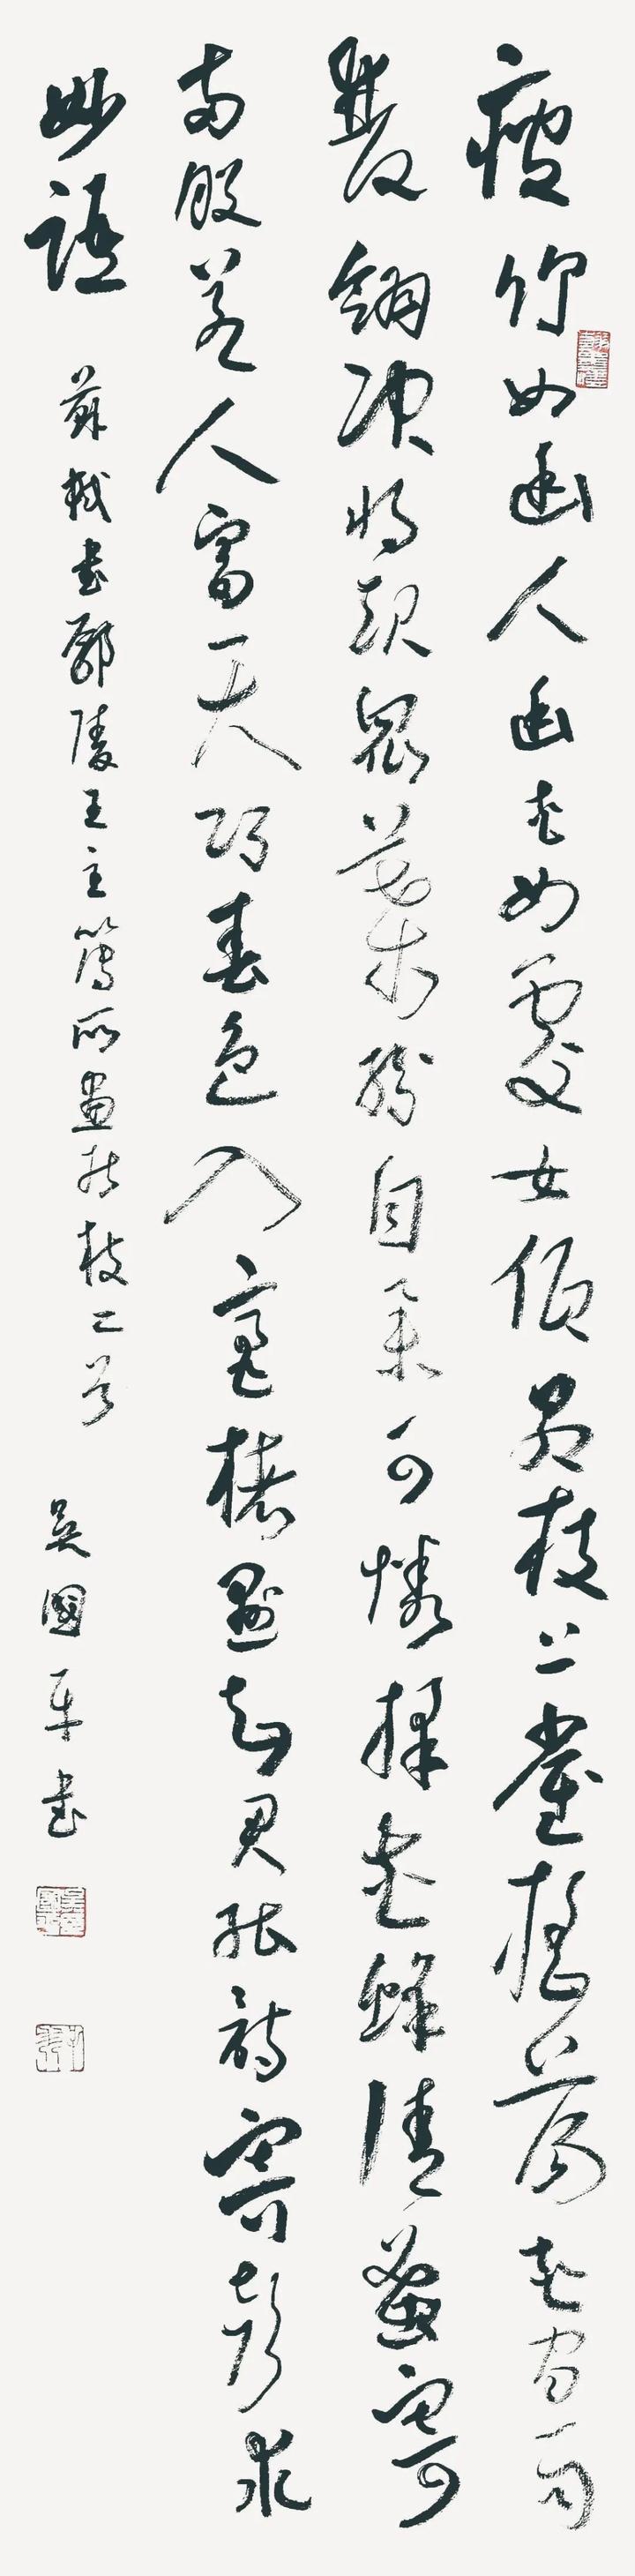 瘦竹如幽人幽花如處女低昂枝上雀搖蕩花間雨
雙翎決將起眾葉紛自舉可憐採花蜂清蜜寄
兩股若人富天巧春色入毫楮懸知君能詩寄聲求
妙語 蘇軾書鄢陵王主簿所畫折枝二首 吳國平書